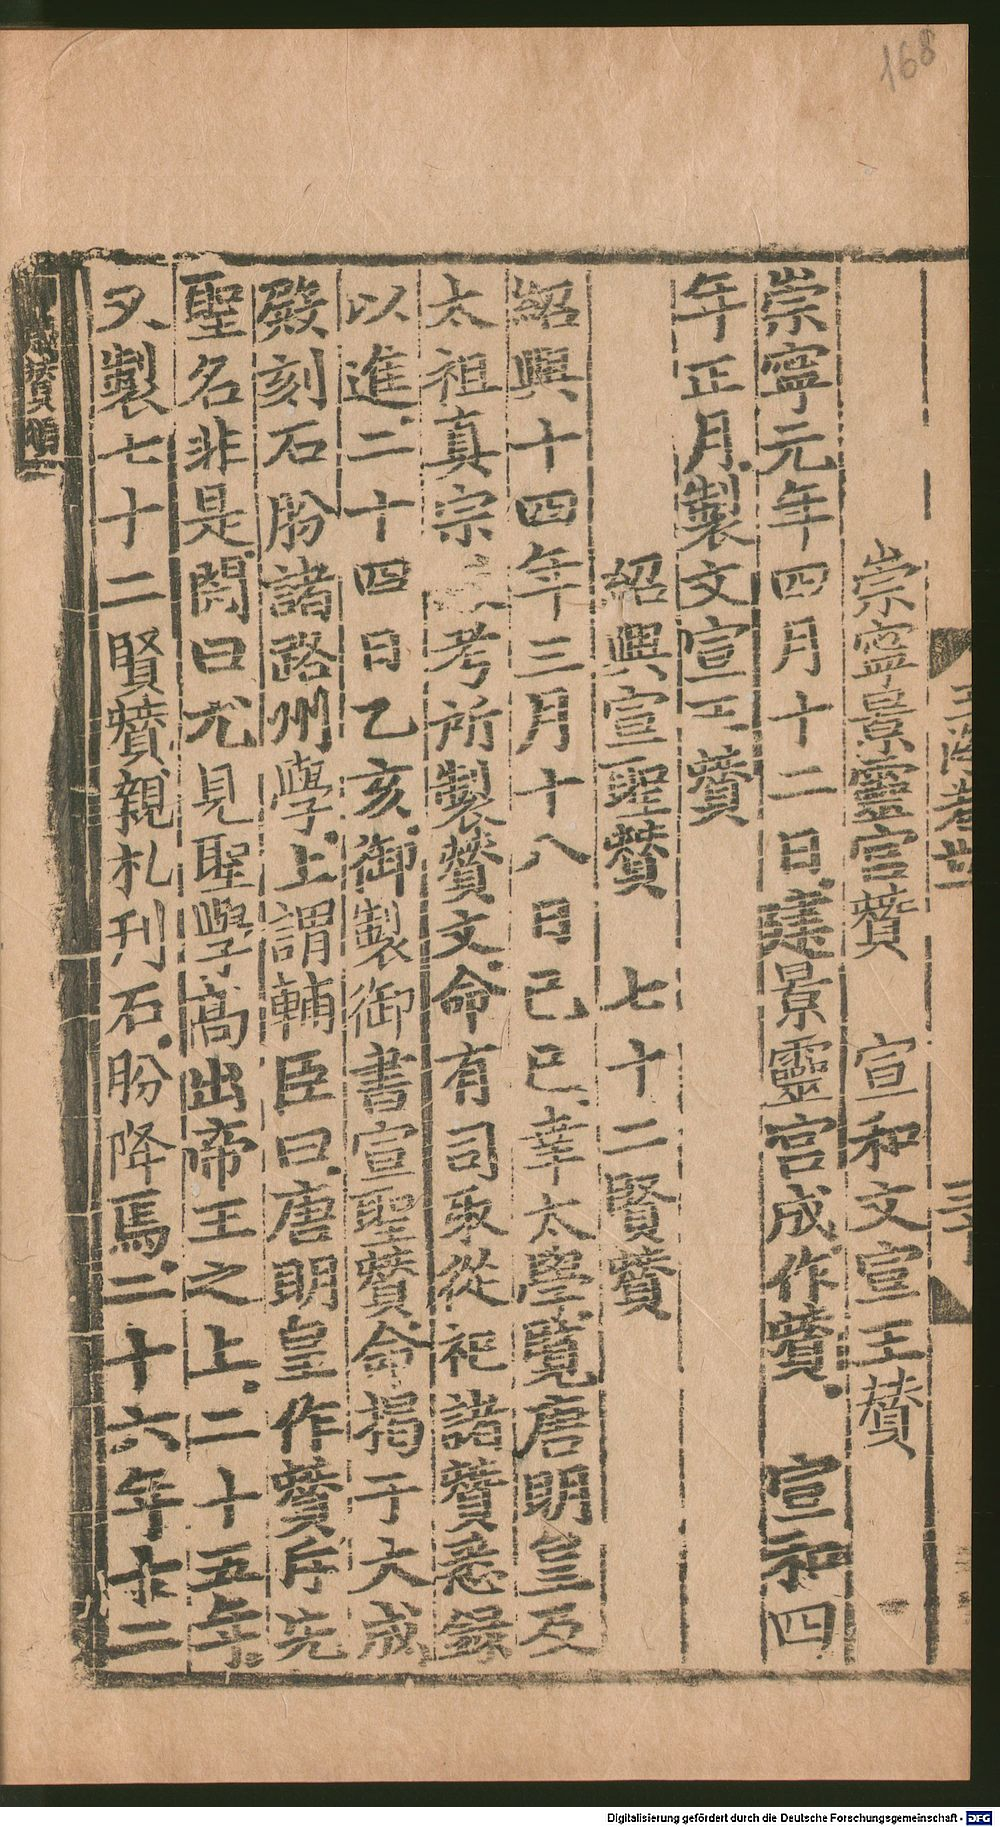 168
崇寧景靈宮賛　宣和文宣王賛
崇寧元年四月十二日建景靈宮成作賛　宣和四
年正月製文宣王賛
紹興宣聖賛　七十二賢賛
紹興十四年三月十八日己巳幸太學覽唐明皇及
太祖真宗 考所製賛文命有司取從祀諸賛悉錄
以進二十四日乙亥御製御書宣聖賛命揭于大成
殿刻石頒諸路州學上謂輔臣曰唐明皇作賛斥先
聖名非是閎曰尤見聖學髙出帝王之上二十五年
又製七十二賢賛親札刋石頒降焉二十六年十二
Digitalisierung gefördert durch die Deutsche Forschungsgemeinschaft - DFG